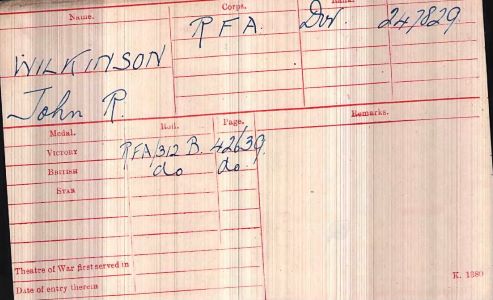 Name. Corps. Rank.
RFA. Dvr. 247829.
WILKINSON
John R.
Medal. Roll. Page. Remarks.
VICTORY RFA/312 B. 42639.
BRITISH do do.
STAR
Theatre of War first served in
Date of entry therein
K. 1380